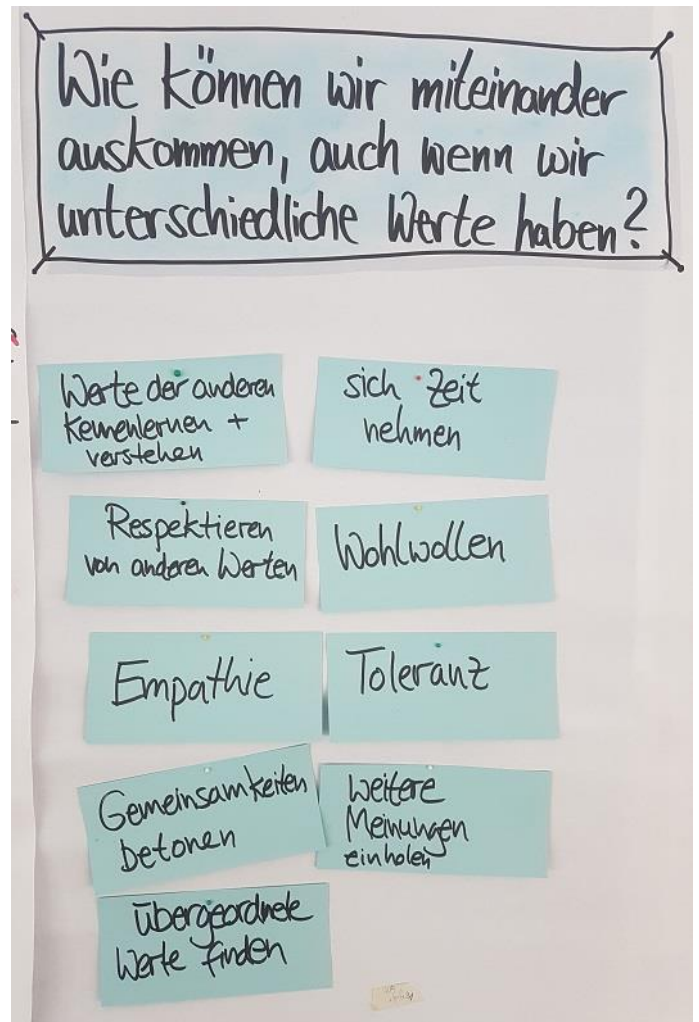 Wie können wir miteinander
auskommen, auch wenn wir
unterschiedliche Werte haben?
Werte der anderen
Kennenlernen +
verstehen
sich Zeit
nehmen
Respektieren
von anderen Werten
Wohlwollen
Empathie
Toleranz
Gemeinsamkeiten
betonen
weitere
Meinungen
einholen
übergeordnete
Werte finden